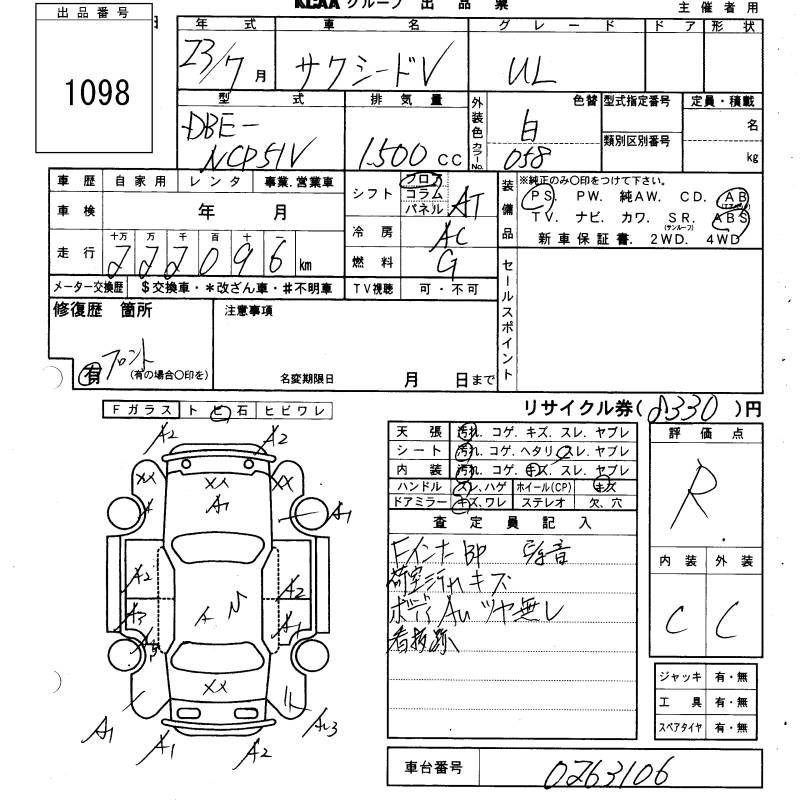 出品番号
1098
KCAA グループ 出品票
主催者用
年式 車名 グレード ドア形状
23/7月 サクシードV UL
型式 排気量 外装色 カラーNo. 色替 型式指定番号 定員・積載
DBE-
NCP51V 1,500 CC 白 058 類別区別番号 名 kg
車歴 自家用 レンタ 事業.営業車
車検 年 月
走行 十万 万 千 百 十 一
222096 km
メーター交換歴 $交換車・*改ざん車・#不明車
シフト フロア コラム パネル AT
冷房 AC
燃料 G
TV視聴 可・不可
装備品
※純正のみ〇印をつけて下さい。
PS. PW. 純AW. CD. AB
(エアバック)
TV. ナビ. カワ. SR. ABS
(サンルーフ)
新車保証書. 2WD. 4WD
セールスポイント
修復歴 箇所
有 フロント
(有の場合〇印を)
注意事項
名変期限日 月 日まで
リサイクル券(8330)円
Fガラス トビ石 ヒビワレ
A2 A2
XX XX XX
A1 A1
A2 A2
A3 A1
XX
A1 A1 A2
天張 汚れ. コゲ. キズ. スレ. ヤブレ
シート 汚れ. コゲ. ヘタリ. スレ. ヤブレ
内装 汚れ. コゲ. キズ. スレ. ヤブレ
ハンドル スレ.ハゲ ホイール(CP) キズ
ドアミラー キズ.ワレ ステレオ 欠、穴
査定員記入
荷室汚れキズ
ツヤ無し
看板跡
評価点
R
内装 外装
C C
ジャッキ 有・無
工具 有・無
スペアタイヤ 有・無
車台番号 0263106